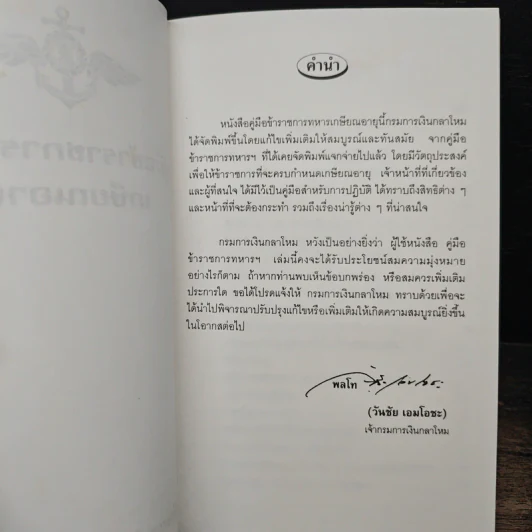 คำนำ
หนังสือคู่มือข้าราชการทหารเกษียณอายุนี้กรมการเงินกลาโหม
ได้จัดพิมพ์ขึ้นโดยแก้ไขเพิ่มเติมให้สมบูรณ์และทันสมัย จากคู่มือ
ข้าราชการทหารฯ ที่ได้เคยจัดพิมพ์แจกจ่ายไปแล้ว โดยมีวัตถุประสงค์
เพื่อให้ข้าราชการที่จะครบกำหนดเกษียณอายุ เจ้าหน้าที่ที่เกี่ยวข้อง
และผู้ที่สนใจ ได้มีไว้เป็นคู่มือสำหรับการปฏิบัติ ได้ทราบถึงสิทธิต่าง ๆ
และหน้าที่ที่จะต้องกระทำ รวมถึงเรื่องน่ารู้ต่าง ๆ ที่น่าสนใจ
กรมการเงินกลาโหม หวังเป็นอย่างยิ่งว่า ผู้ใช้หนังสือ คู่มือ
ข้าราชการทหารฯ เล่มนี้คงจะได้รับประโยชน์สมความมุ่งหมาย
อย่างไรก็ตาม ถ้าหากท่านพบเห็นข้อบกพร่อง หรือสมควรเพิ่มเติม
ประการใด ขอได้โปรดแจ้งให้ กรมการเงินกลาโหม ทราบด้วยเพื่อจะ
ได้นำไปพิจารณาปรับปรุงแก้ไขหรือเพิ่มเติมให้เกิดความสมบูรณ์ยิ่งขึ้น
ในโอกาสต่อไป
พลโท
(วันชัย เอมโอชะ)
เจ้ากรมการเงินกลาโหม